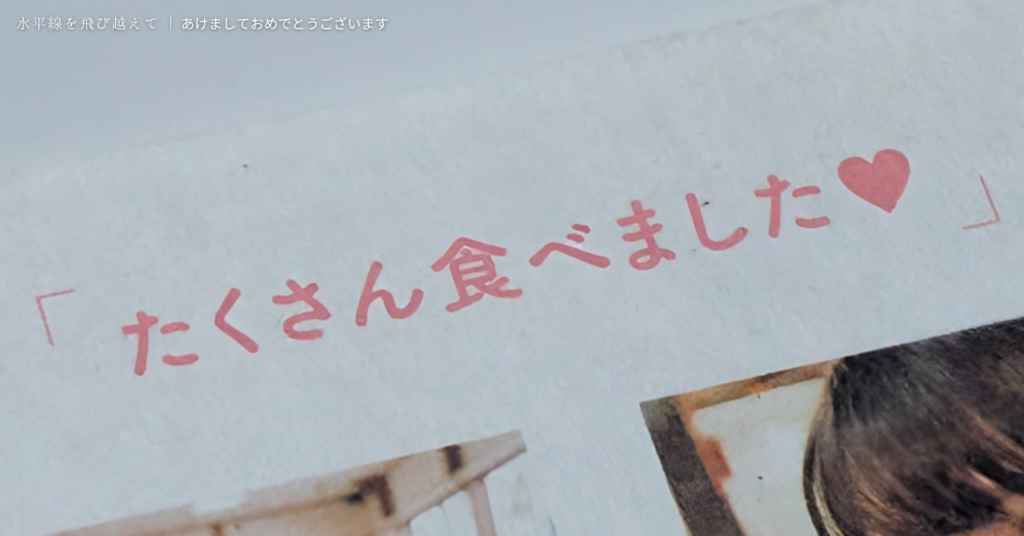 水平線を飛び越えて｜あけましておめでとうございます
「たくさん食べました♥」